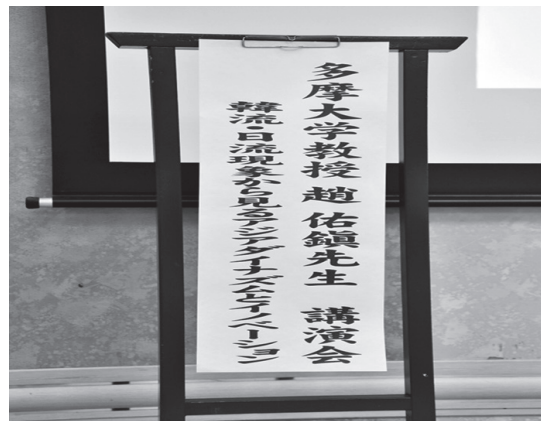 多摩大学教授 趙 佑鎭先生 講演会
韓流・日流現象から見るアジアダイナミズムとイノベーション